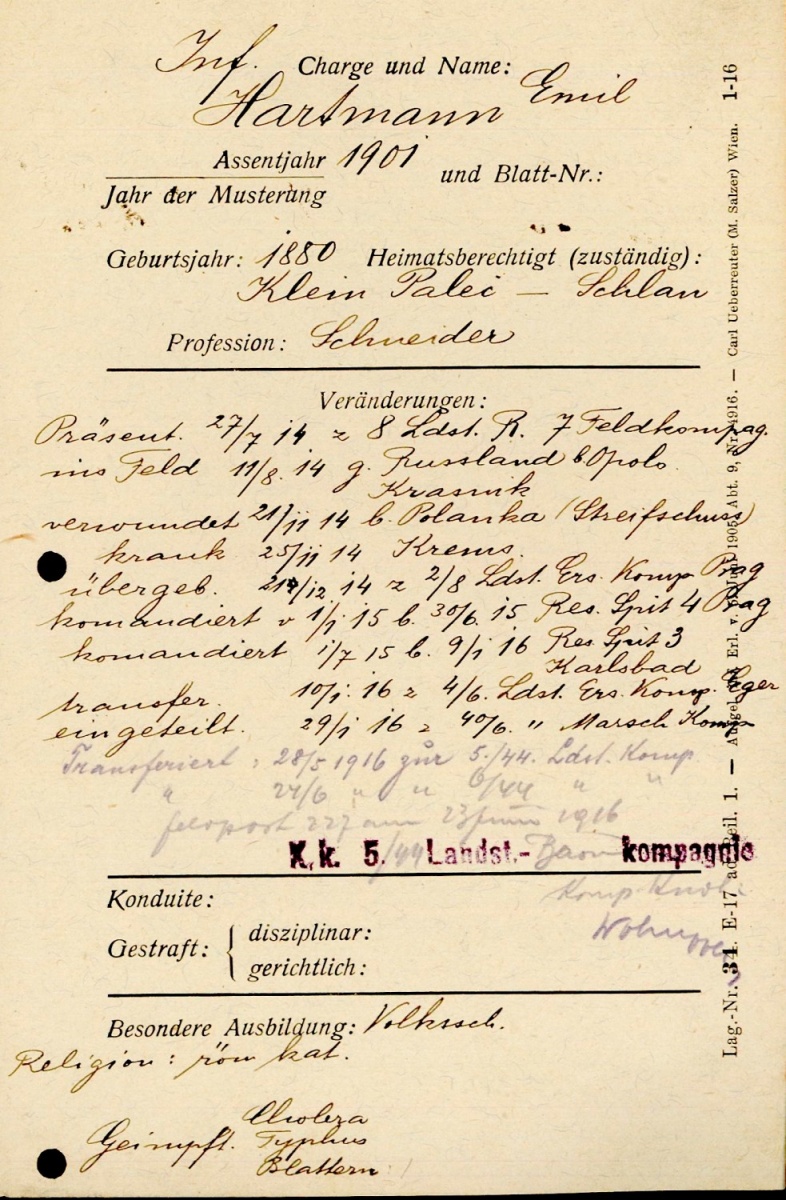 Inf. Charge und Name: Emil
Hartmann
Assentjahr 1901 und Blatt-Nr.:
Jahr der Musterung
Geburtsjahr: 1880 Heimatsberechtigt (zuständig):
Klein Paleč — Schlan
Profession: Schneider
Veränderungen:
Präsent. 27/7 14 z 8 Ldst. R. 7 Feldkompag.
ins Feld 11/8. 14 g. Russland b. Opolo.
Krasnik
verwundet 21/11 14 b. Polanka (Streifschuss)
krank 25/11 14 Krems.
übergeb. /12 14 z 2/8 Ldst. Ers. Komp Prag
komandiert v 1/1 15 b. 30/6. 15 Res. Spit 4 Prag
komandiert 1/7 15 b. 9/1 16 Res. Spit 3
Karlsbad
transfer. 10/1. 16 z 4/6. Ldst. Ers. Komp. Eger
eingeteilt. 29/1 16 z 40/6. " Marsch Komp
Transferiert: 28/5 1916 zur 5./44. Ldst. Komp
" 24/6 " " 6/44 " "
feldpost 227 am 23 Juni 1916
K.k. 5. /44 Landst.- kompagnie
Komp
Konduite:
Gestraft: disziplinar:
gerichtlich:
Besondere Ausbildung: Volkssch.
Religion: röm kat.
Geimpft. Cholera
Typhus
Blattern
Lag.-Nr. 34. E-17 ad Beil. 1. — Erl. v. 1905, Abt. 9, Nr. 4916. — Carl Ueberreuter (M. Salzer) Wien. 1-16